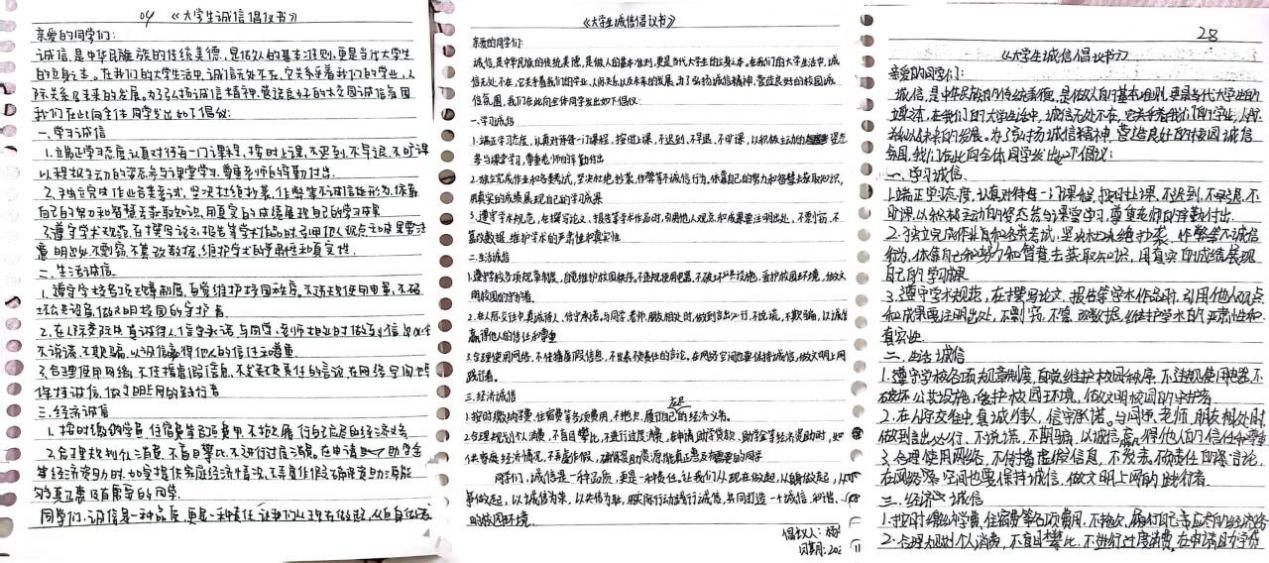 04 《大学生诚信倡议书》
亲爱的同学们:
诚信,是中华民族的传统美德,是做人的基本准则,更是当代大学生
的立身之本。在我们的大学生活中,诚信无处不在,它关系着我们的学业、人
际关系及未来的发展。为了弘扬诚信精神,营造良好的校园诚信氛围
我们在此向全体同学发出如下倡议:
一、学习诚信
1.端正学习态度,认真对待每一门课程,按时上课,不迟到、不早退、不旷课
以积极主动的姿态参与课堂学习,尊重老师的辛勤付出。
2.独立完成作业各类考试,坚决杜绝抄袭、作弊等不诚信行为,依靠
自己的努力和智慧去获取知识,用真实的成绩展现自己的学习成果
3.遵守学术规范,在撰写论文、报告等学术作品时,引用他人观点和成果要注
明出处,不剽窃、不篡改数据,维护学术的严肃性和真实性。
二、生活诚信
1.遵守学校各项规章制度,自觉维护校园秩序。不违规使用电器,不破
坏公共设施,做文明校园的守护者。
2.在人际交往中,真诚待人,信守承诺,与同学、老师相处时,做到言出必行
不说谎、不欺骗,以诚信赢得他人的信任和尊重
3.合理使用网络,不传播虚假信息,不发表不负责任的言论,在网络空间也要
保持诚信,做文明上网的践行者
三、经济诚信
1.按时缴纳学费、住宿费等各项费用,不拖欠,履行自己应尽的经济义务
2.合理规划个人消费,不盲目攀比,不进行过度消费。在申请助学金
等经济资助时,如实提供家庭经济情况,不弄虚作假,确保资助资源能
够真正惠及有需要的同学。
同学们,诚信是一种品质,更是一种责任,让我们从现在做起,从自身做起
《大学生诚信倡议书》
亲爱的同学们:
诚信,是中华民族的传统美德,是做人的基本准则,更是当代大学生的立身之本。在我们的大学生活中,诚
信无处不在,它关系着我们的学业、人际关系以及未来的发展。为了弘扬诚信精神,营造良好的校园诚
信氛围,我们在此向全体同学发出如下倡议:
一、学习诚信
1.端正学习态度,认真对待每一门课程,按时上课,不迟到、不早退、不旷课,以积极主动的姿态
参与课堂学习,尊重老师的辛勤付出
2.独立完成作业和各类考试,坚决杜绝抄袭、作弊等不诚信行为,依靠自己的努力和智慧去获取知识,
用真实的成绩展现自己的学习成果
3.遵守学术规范,在撰写论文、报告等学术作品时,引用他人观点和成果要注明出处,不剽窃、不
篡改数据,维护学术的严肃性和真实性
二、生活诚信
1.遵守学校各项规章制度,自觉维护校园秩序,不违规使用电器,不破坏公共设施,爱护校园环境,做文
明校园的守护者。
2.在人际交往中,真诚待人,信守承诺,与同学、老师、朋友相处时,做到言出必行,不说谎,不欺骗,以诚信
赢得他人的信任和尊重
3.合理使用网络,不传播虚假信息,不发表不负责任的言论,在网络空间也要保持诚信,做文明上网
践行者。
三、经济诚信
1.按时缴纳学费、住宿费等各项费用,不拖欠,履行自己应尽的经济义务。
2.合理规划个人消费,不盲目攀比,不进行过度消费,在申请助学贷款、助学金等经济资助时,如
供家庭经济情况,不弄虚作假,确保资助资源能真正惠及有需要的同学
同学们,诚信是一种品质,更是一种责任,让我们从现在做起,从自身做起,从
事做起,以诚信为荣,以失信为耻,用实际行动践行诚信,共同打造一个诚信、和谐、
的校园环境。
倡议人:
日期:202
28
《大学生诚信倡议书》
亲爱的同学们:
诚信,是中华民族的传统美德,是做人的基本准则,更是当代大学生的
立身之本,在我们的大学生活中,诚信无处不在,它关系着我们的学业、人际
关系以及未来的发展。为了弘扬诚信精神,营造良好的校园诚信
氛围,我们在此向全体同学发出如下倡议:
一、学习诚信。
1.端正学习态度,认真对待每一门课程,按时上课,不迟到、不早退、不
旷课,以积极主动的姿态参与课堂学习,尊重老师的辛勤付出.
2.独立完成作业和各类考试,坚决杜绝抄袭、作弊等不诚信
行为,依靠自己的努力和智慧去获取知识,用真实的成绩展现
自己的学习成果
3.遵守学术规范,在撰写论文、报告等学术作品时,引用他人观点
和成果要注明出处,不剽窃、不篡改数据,维护学术的严肃性和
真实性.
二、生活诚信
1.遵守学校各项规章制度,自觉维护校园秩序,不违规使用电器,不
破坏公共设施,维护校园环境,做文明校园的守护者.
2.在人际交往中,真诚待人,信守承诺,与同学、老师、朋友相处时
做到言出必行,不说谎,不欺骗,以诚信赢得他人的信任和尊重
3.合理使用网络,不传播虚假信息,不发表不负责任的言论,
在网络空间也要保持诚信,做文明上网的践行者.
三、经济诚信
1.按时缴纳学费、住宿费等各项费用,不拖欠,履行自己应尽的经济义务
2.合理规划个人消费,不盲目攀比,不进行过度消费,在申请助学贷